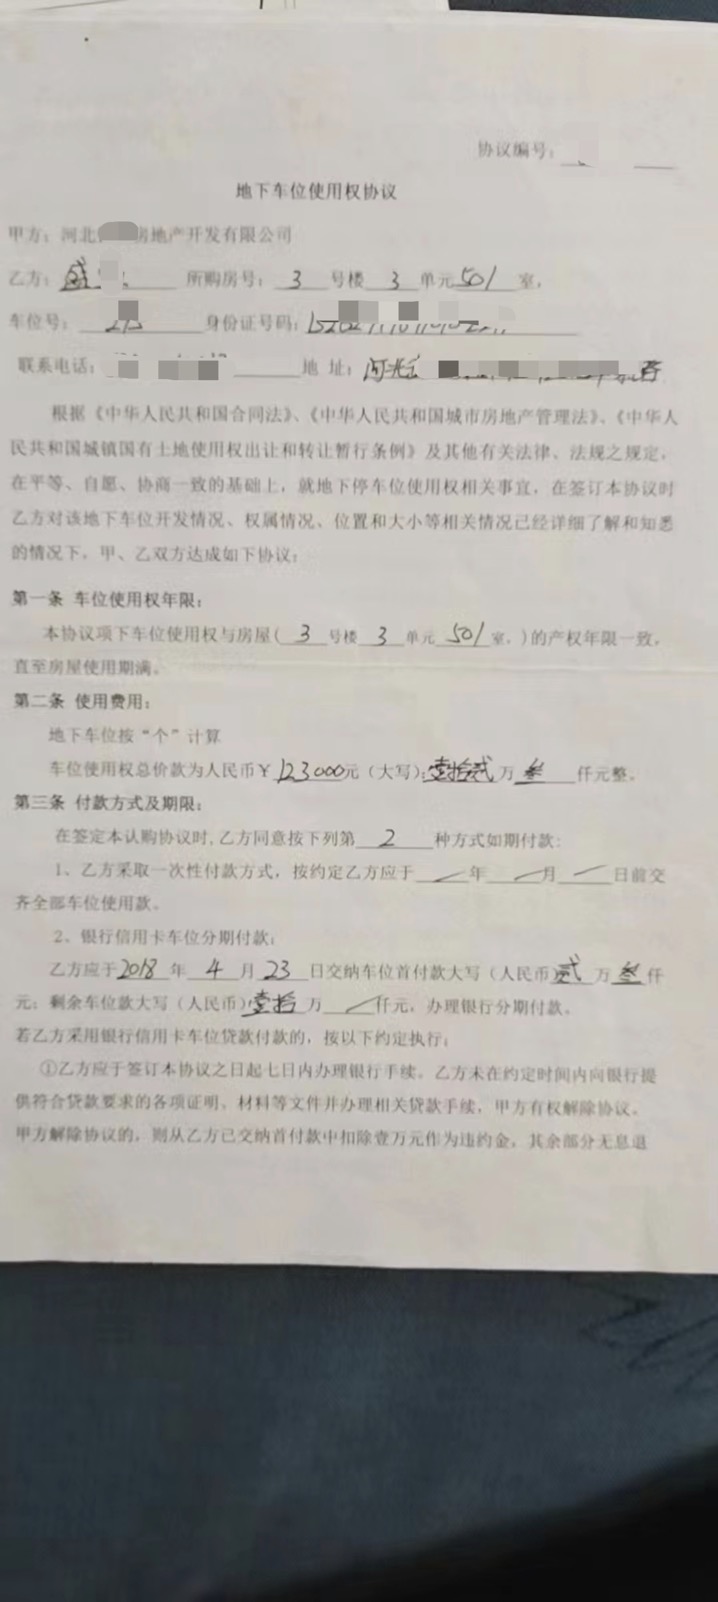 协议编号：
地下车位使用权协议
甲方：河北 房地产开发有限公司
乙方：盛 所购房号：3号楼3单元501室，
车位号： 身份证号码：
联系电话： 地 址：河北
根据《中华人民共和国合同法》、《中华人民共和国城市房地产管理法》、《中华人
民共和国城镇国有土地使用权出让和转让暂行条例》及其他有关法律、法规之规定，
在平等、自愿、协商一致的基础上，就地下停车位使用权相关事宜，在签订本协议时
乙方对该地下车位开发情况、权属情况、位置和大小等相关情况已经详细了解和知悉
的情况下，甲、乙双方达成如下协议：
第一条 车位使用权年限：
本协议项下车位使用权与房屋(3号楼3单元501室，)的产权年限一致，
直至房屋使用期满。
第二条 使用费用：
地下车位按“个”计算
车位使用权总价款为人民币￥123000元（大写）：壹拾贰万叁仟元整。
第三条 付款方式及期限：
在签定本认购协议时,乙方同意按下列第2种方式如期付款:
1、乙方采取一次性付款方式，按约定乙方应于/年/月/日前交
齐全部车位使用款。
2、银行信用卡车位分期付款：
乙方应于2018年4月23日交纳车位首付款大写（人民币）贰万叁仟
元；剩余车位款大写（人民币）壹拾万/仟元，办理银行分期付款。
若乙方采用银行信用卡车位贷款付款的，按以下约定执行：
①乙方应于签订本协议之日起七日内办理银行手续。乙方未在约定时间内向银行提
供符合贷款要求的各项证明、材料等文件并办理相关贷款手续，甲方有权解除协议。
甲方解除协议的，则从乙方已交纳首付款中扣除壹万元作为违约金，其余部分无息退